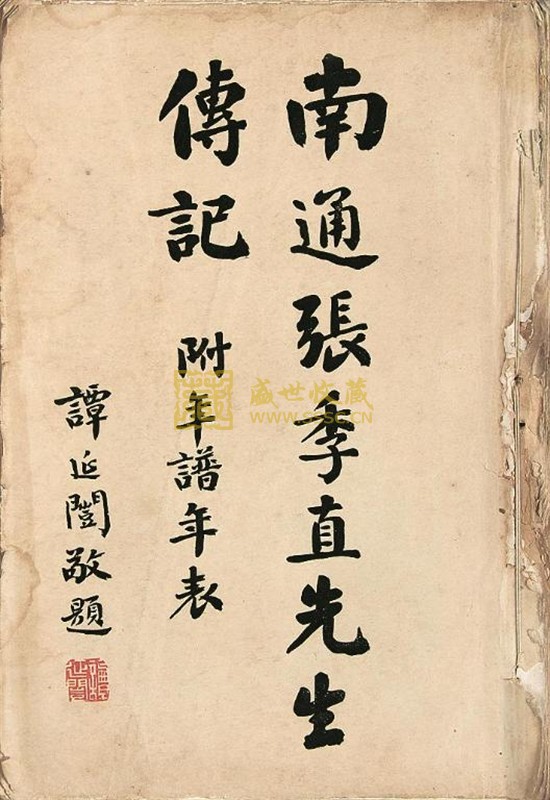 南通張季直先生
傳記
附年譜年表
譚延闓敬題
盛世收藏
WWW.SSSC.CN